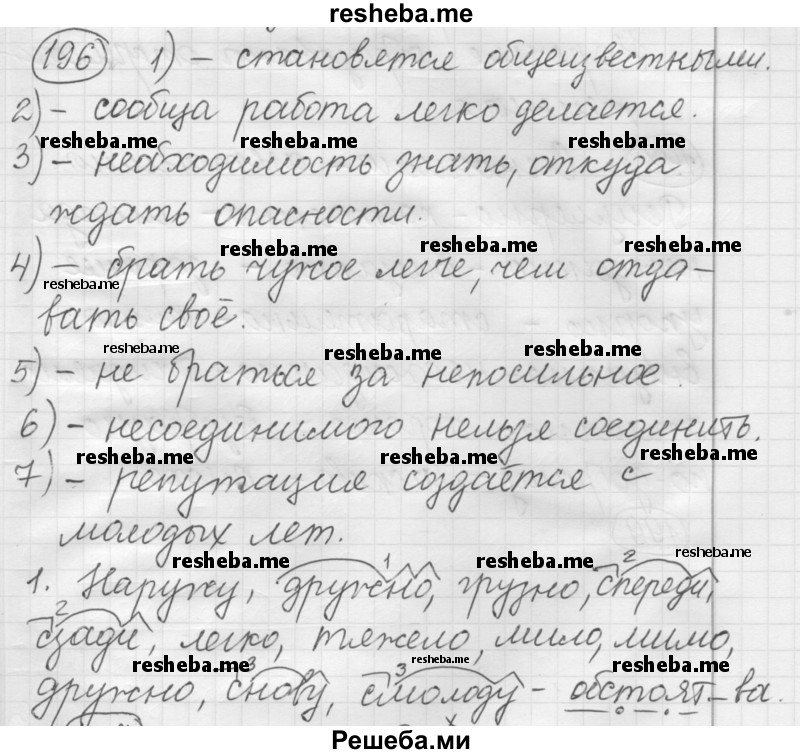 resheba.me
196 1) – становятся общеизвестными.
2) – сообща работа легко делается.
resheba.me resheba.me resheba.me
3) – необходимость знать, откуда
ждать опасности.
resheba.me resheba.me resheba.me
4) – брать чужое легче, чем отда-
resheba.me
вать своё.
resheba.me resheba.me resheba.me
5) – не браться за непосильное.
6) – несоединимого нельзя соединить.
resheba.me resheba.me resheba.me
7) – репутация создаётся с
молодых лет.
resheba.me resheba.me resheba.me
1 2
1. Наружу, дружно, грузно, спереди,
2
сзади, легко, тяжело, мило, мимо,
resheba.me resheba.me resheba.me
3 3
дружно, снову, смолоду – обстоят–ва.
resheba.me resheba.me resheba.me
Решеба.ми